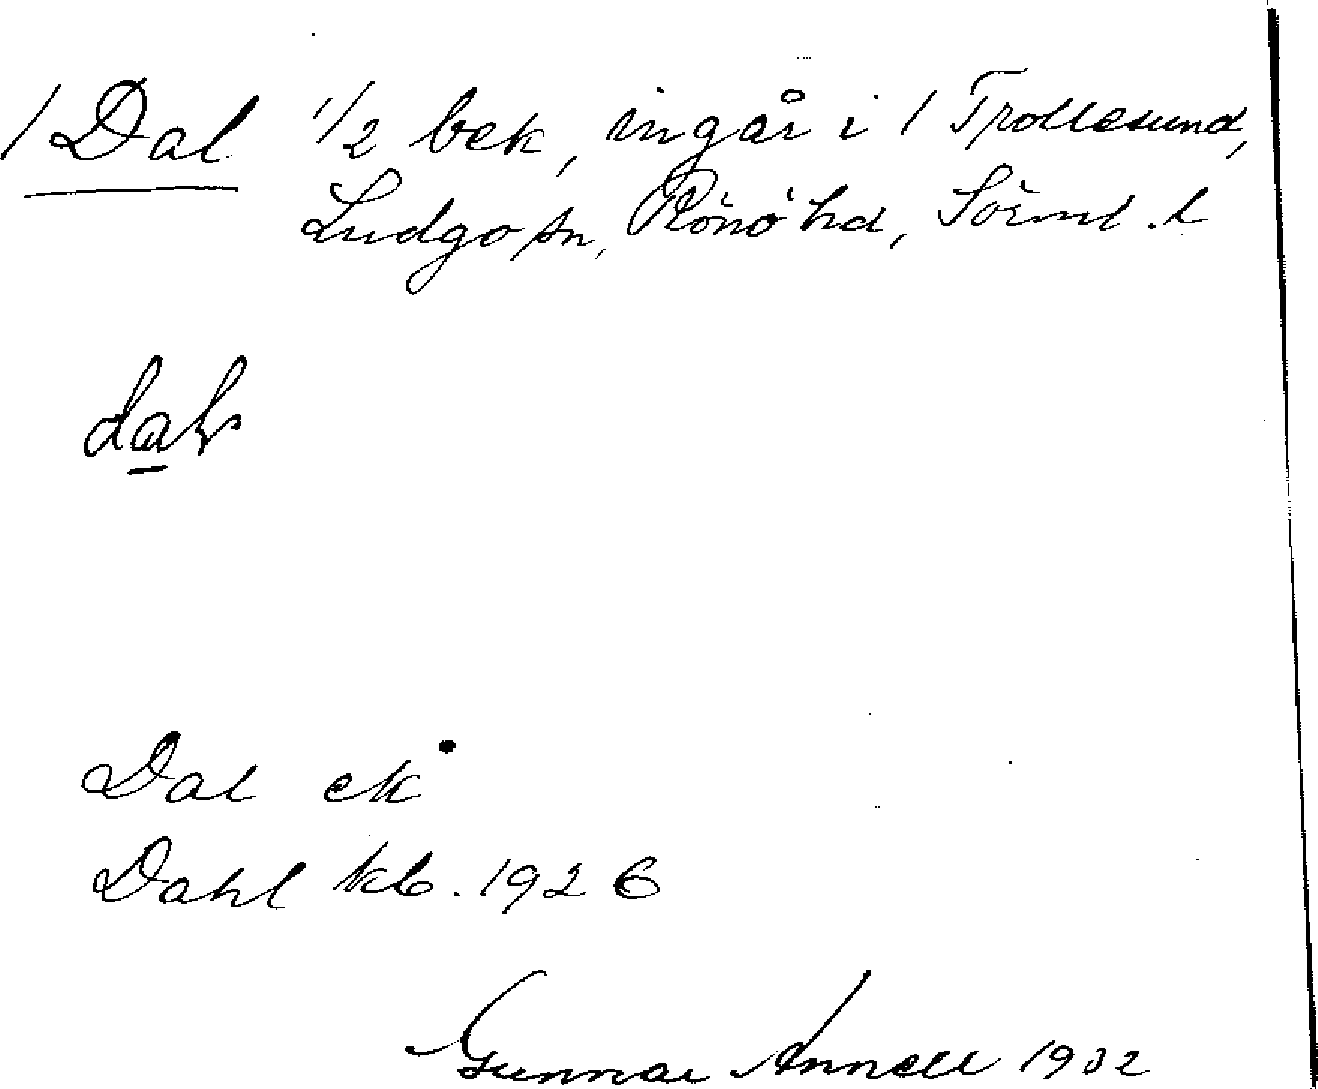 / Dal 1/2 bek, ingår i / Trollesund,
Ludgo sn, Rönö hd, Sörml. l
dal
Dal ek
Dahl kb. 1926
Gunnar Annell 1932